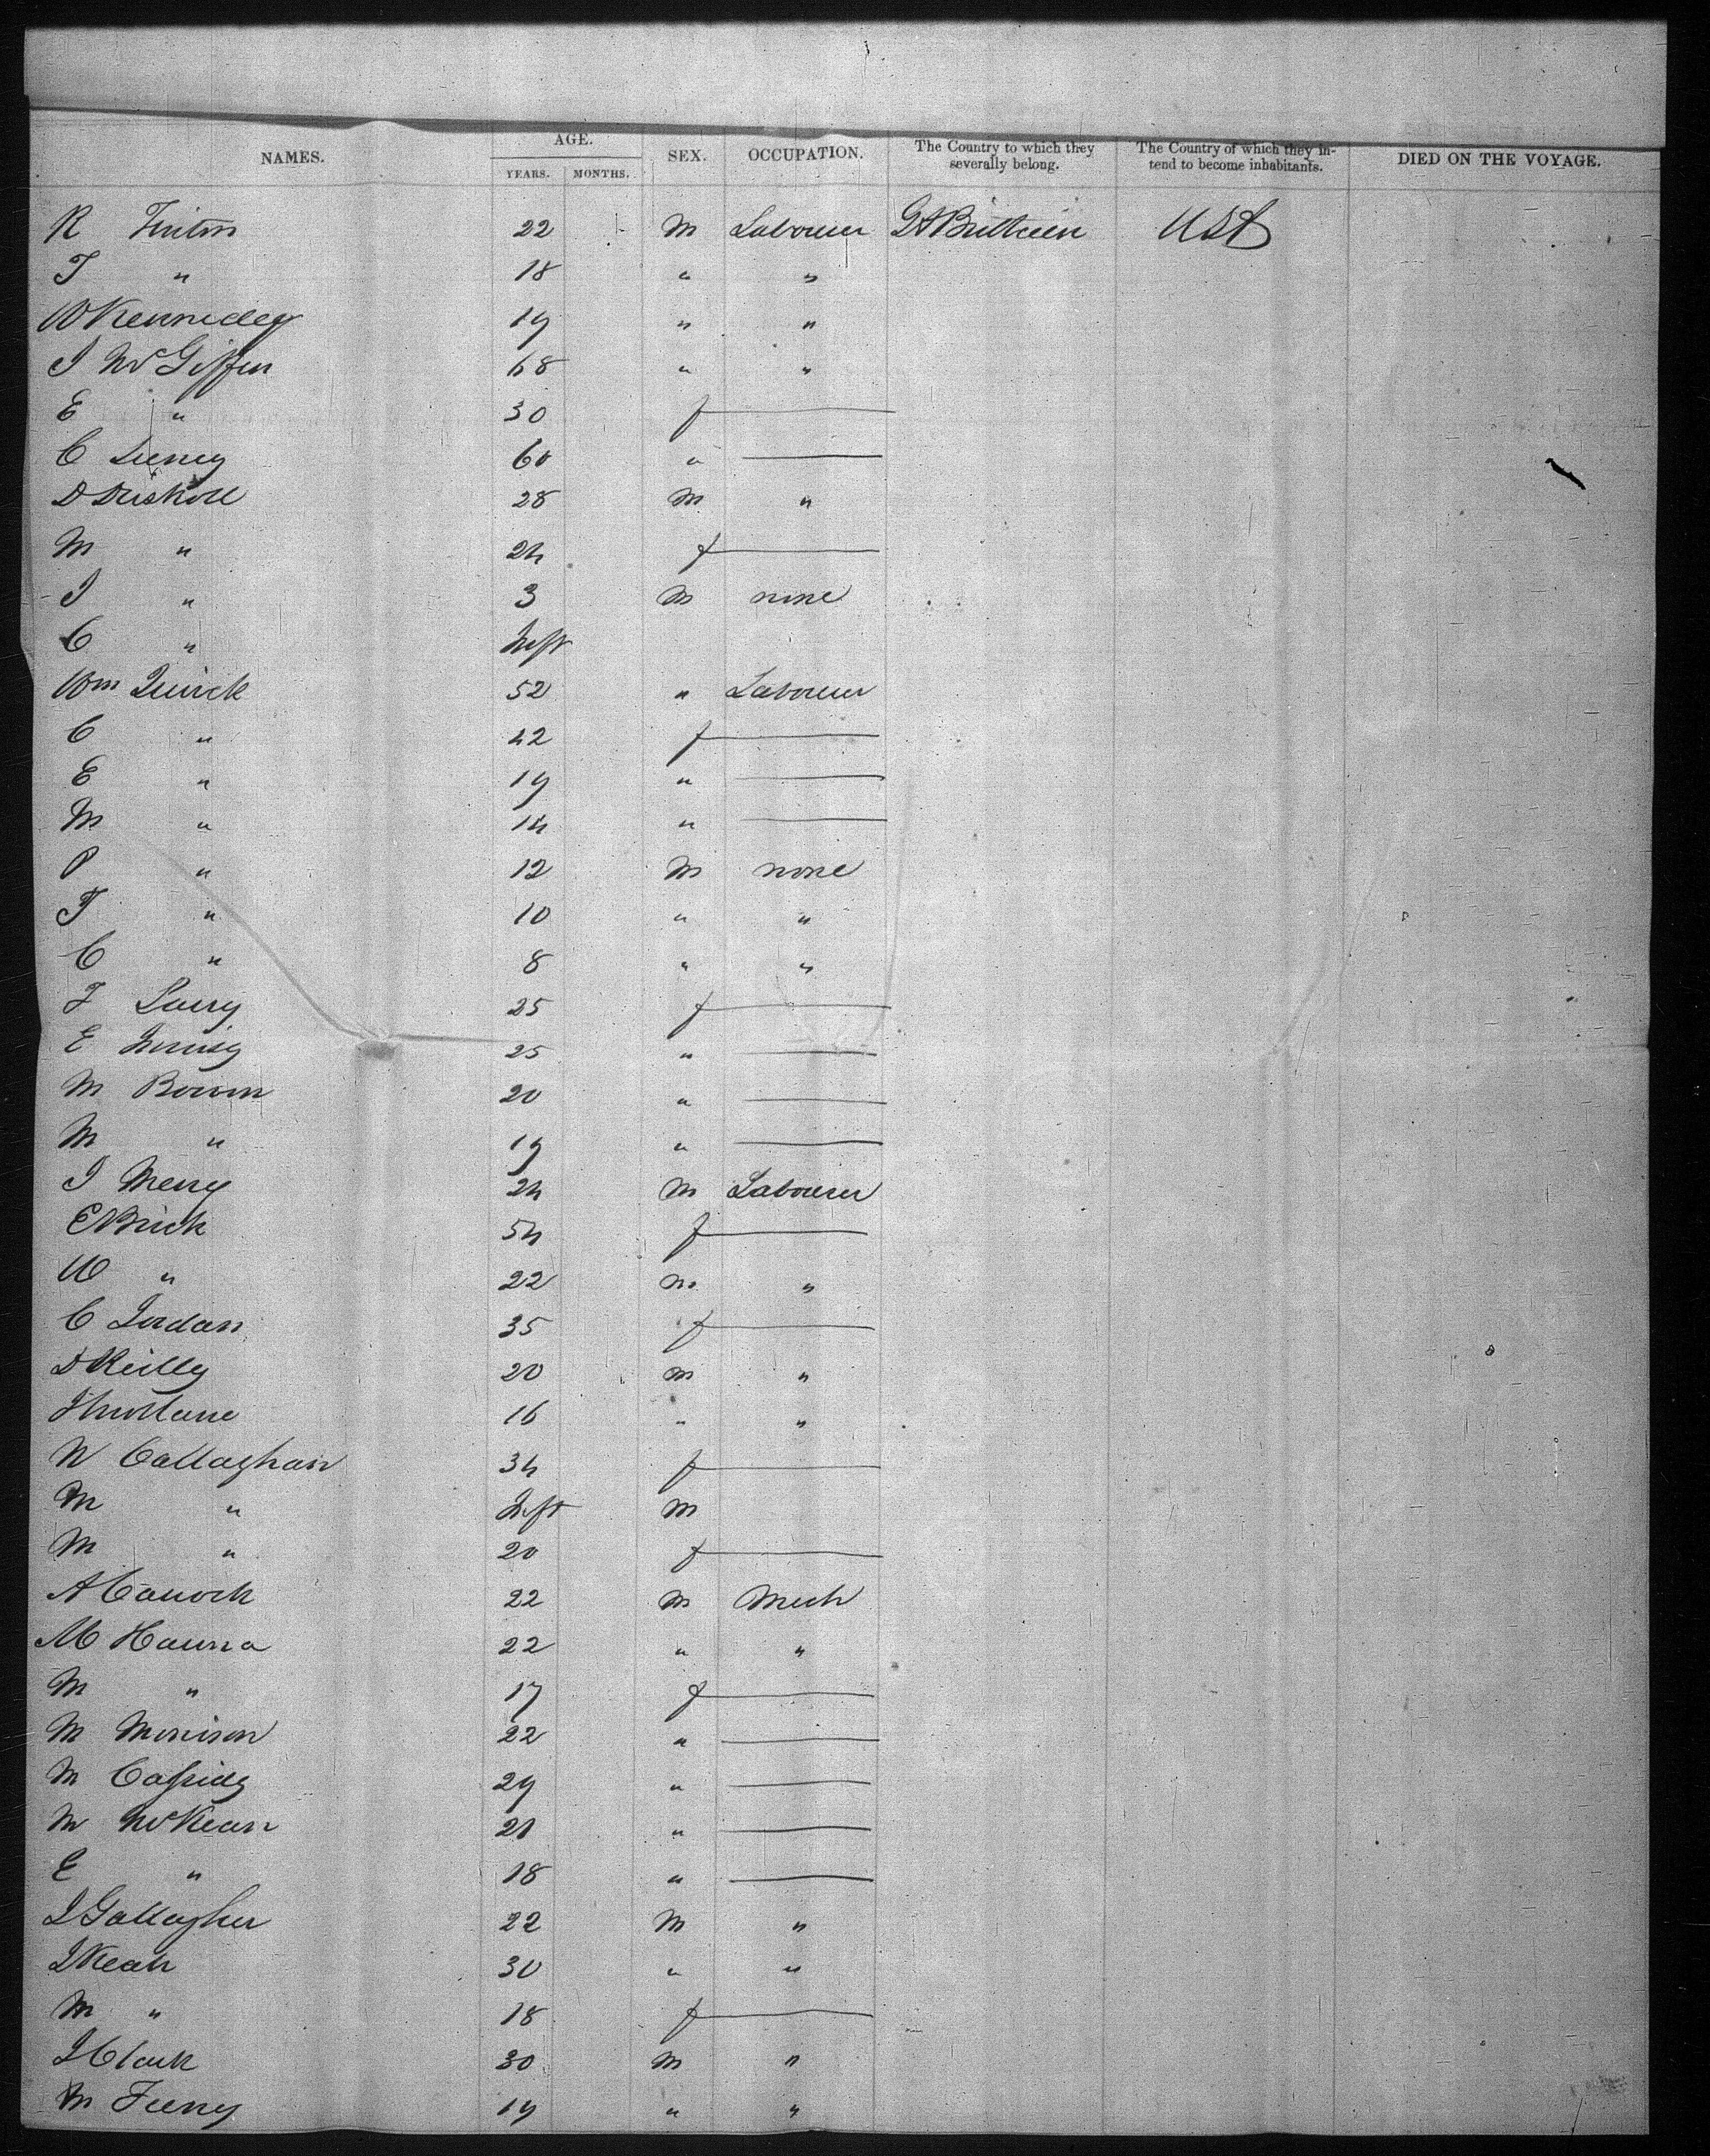 NAMES. AGE. YEARS. MONTHS. SEX. OCCUPATION. The Country to which they severally belong. The Country of which they intend to become inhabitants. DIED ON THE VOYAGE.
R Finton 22 M Labourer Gt Brittain USA
T " 18 " "
W Kennedey 19 " "
J McGiffin 68 " "
E " 30 f
C 60 "
D Driskoll 28 M "
M " 24 f
J " 3 M none
C " Inft
Wm Quirck 52 " Labourer
C " 42 f
E " 19 "
M " 14 "
P " 12 M none
T " 10 " "
C " 8 " "
25 f
E 25 "
M Bowen 20 "
M " 19 "
J Merry 24 M Labourer
E Brick 54 f
W " 22 M "
C Jordan 35 f
D Reilly 20 M "
16 " "
N Callaghan 34 f
M " Inft M
M " 20 f
A 22 M Mech
M Hanna 22 " "
M " 17 f
M Morrison 22 "
M Cassidy 29 "
M McKean 21 "
E " 18 "
J Gallagher 22 M "
J Keah 30 " "
M " 18 f
J Clark 30 M "
M Feeny 19 " "